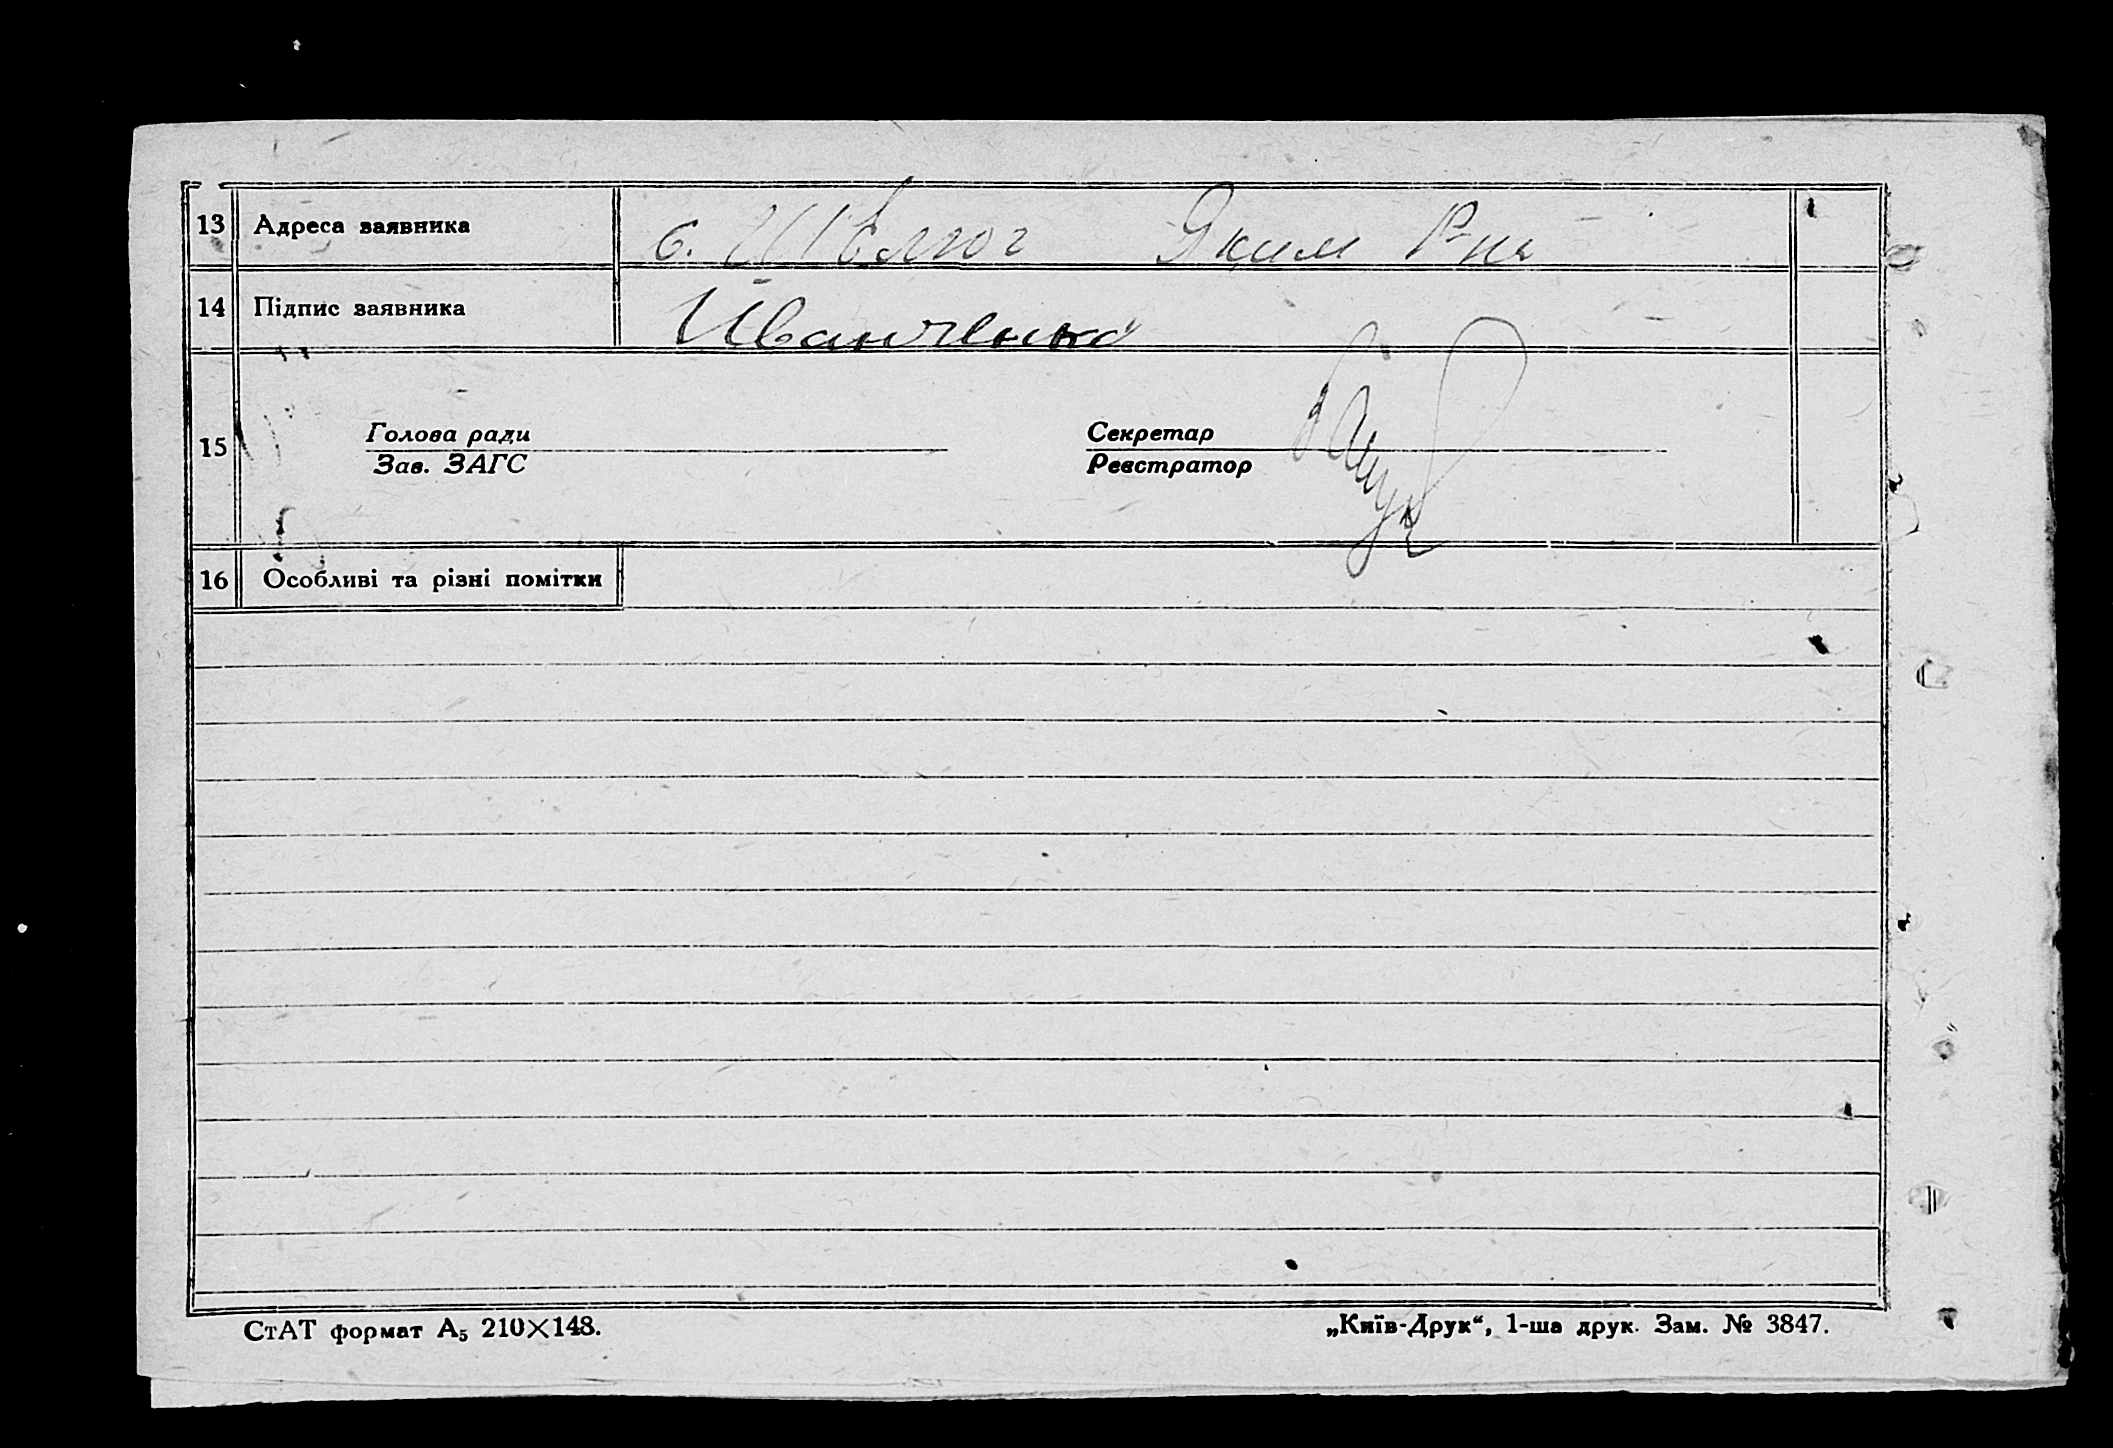 13 Адреса заявника с. Шевлюг Яким Р-на
14 Підпис заявника Иванченко
15 Голова ради Секретар
Зав. ЗАГС Реєстратор
16 Особливі та різні помітки
СтАТ формат А₅ 210×148. „Київ-Друк“, 1-ша друк. Зам. № 3847.